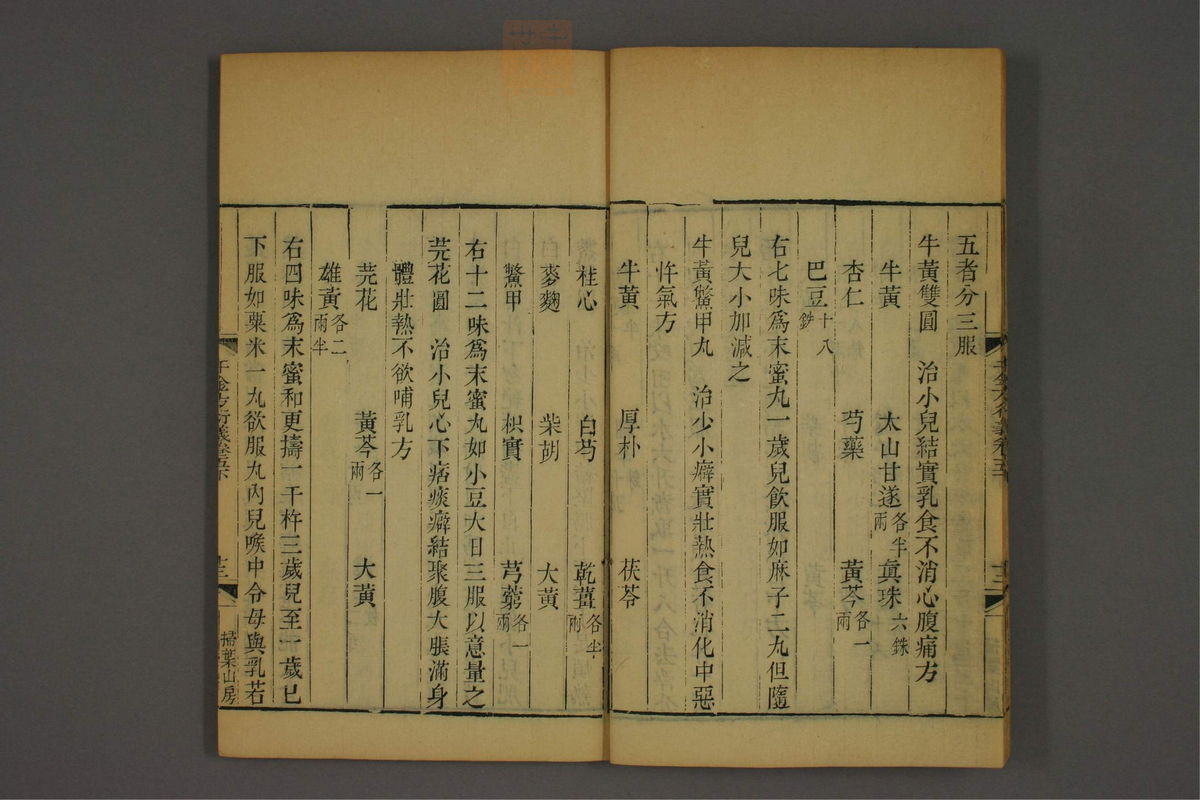 五者分三服
牛黃雙圓　治小兒結實乳食不消心腹痛方
牛黃　太山甘遂各半兩　眞珠六銖
杏仁　芍藥　黃芩各一兩
巴豆十八銖
右七味爲末蜜丸一歲兒飲服如麻子二丸但隨
兒大小加減之
牛黃鱉甲丸　治少小癖實壯熱食不消化中惡
忤氣方
牛黃　厚朴　茯苓
桂心　白芍　乾薑各半兩
麥麴　柴胡　大黃
鱉甲　枳實　芎藭各一兩
右十二味爲末蜜丸如小豆大日三服以意量之
芫花圓　治小兒心下痞痰癖結聚腹大脹滿身
體壯熱不欲哺乳方
芫花　黃芩各一兩　大黃
雄黃各二兩半
右四味爲末蜜和更擣一千杵三歲兒至一歲已
下服如粟米一九欲服丸內兒喉中令母與乳若
千金方衍義卷五下
十三
掃葉山房